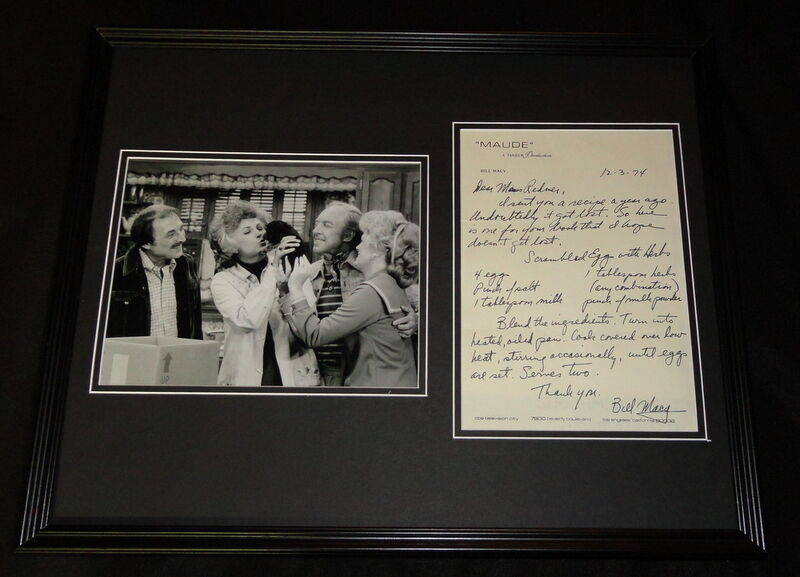 "MAUDE"
A TANDEM Production
BILL MACY
12-3-74
Dear Redner,
I sent you a recipe a year ago.
Undoubtedly it got lost. So here
is one for your book that I hope
doesn't get lost.
Scrambled Eggs with Herbs
4 eggs 1 tablespoon herbs
Pinch of salt (any combination)
1 tablespoon milk pinch of milk powder
Blend the ingredients. Turn into
heated, oiled pan. Cook covered over low
heat, stirring occasionally, until eggs
are set. Serves Two.
Thank you.
Bill Macy
cbs television city 7800 beverly boulevard los angeles, california 90036
UP